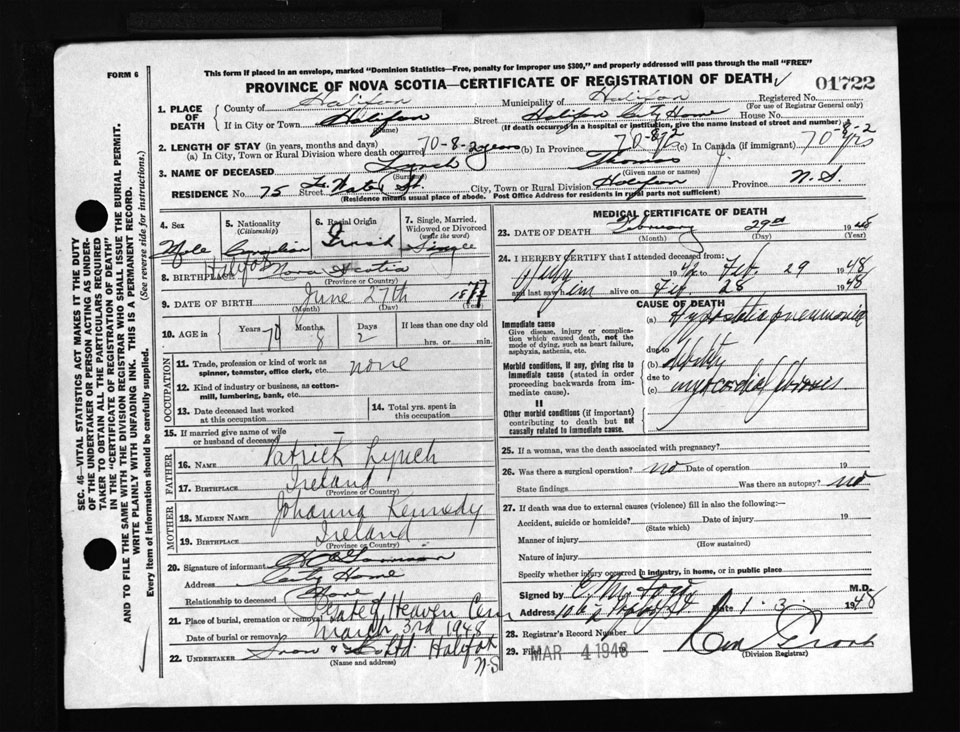 This form if placed in an envelope, marked "Dominion Statistics—Free, penalty for improper use $300," and properly addressed will pass through the mail "FREE"
FORM 6
PROVINCE OF NOVA SCOTIA—CERTIFICATE OF REGISTRATION OF DEATH
01722
1. PLACE OF DEATH
County of Halifax Municipality of Halifax Registered No.
(For use of Registrar General only)
If in City or Town Halifax Street Halifax City Home House No.
(Name) (If death occurred in a hospital or institution, give the name instead of street and number)
2. LENGTH OF STAY (in years, months and days)
(a) In City, Town or Rural Division where death occurred 70-8-2 years (b) In Province 70-8-2 (c) In Canada (if immigrant) 70-8-2 yrs
3. NAME OF DECEASED Lynch Thomas J.
(Surname) (Given name or names)
RESIDENCE No. 75 Street Water St. City, Town or Rural Division Halifax Province N.S.
(Residence means usual place of abode. Post Office Address for residents in rural parts not sufficient)
4. Sex Male
5. Nationality (Citizenship) Canadian
6. Racial Origin Irish
7. Single, Married, Widowed or Divorced (write the word) Single
8. BIRTHPLACE Halifax Nova Scotia
(Province or Country)
9. DATE OF BIRTH June 27th 1877
(Month) (Day) (Year)
10. AGE in Years 70 Months 8 Days 2 If less than one day old
hrs. or min.
OCCUPATION
11. Trade, profession or kind of work as spinner, teamster, office clerk, etc. none
12. Kind of industry or business, as cotton-mill, lumbering, bank, etc.
13. Date deceased last worked at this occupation
14. Total yrs. spent in this occupation
15. If married give name of wife or husband of deceased —
FATHER
16. NAME Patrick Lynch
17. BIRTHPLACE Ireland
(Province or Country)
MOTHER
18. MAIDEN NAME Johanna Kennedy
19. BIRTHPLACE Ireland
(Province or Country)
20. Signature of informant
Address City Home
Relationship to deceased None
21. Place of burial, cremation or removal Gate of Heaven Cem
Date of burial or removal March 3rd 1948
22. UNDERTAKER Snow & Co Ltd. Halifax N.S
(Name and address)
MEDICAL CERTIFICATE OF DEATH
23. DATE OF DEATH February 29th 1948
(Month) (Day) (Year)
24. I HEREBY CERTIFY that I attended deceased from:
194 to Feb. 29 1948
and last saw him alive on Feb 28 1948
CAUSE OF DEATH
Immediate cause
Give disease, injury or complication which caused death, not the mode of dying, such as heart failure, asphyxia, asthenia, etc.
(a) Hypostatic pneumonia
due to
Morbid conditions, if any, giving rise to immediate cause (stated in order proceeding backwards from immediate cause).
(b) debility
due to
myocardial fibrosis
II
Other morbid conditions (if important) contributing to death but not causally related to immediate cause.
25. If a woman, was the death associated with pregnancy?
26. Was there a surgical operation? no Date of operation 19
State findings Was there an autopsy? no
27. If death was due to external causes (violence) fill in also the following:—
Accident, suicide or homicide? Date of injury 19
(State which)
Manner of injury
(How sustained)
Nature of injury
Specify whether injury occurred in industry, in home, or in public place
Signed by M.D.
Address Date 1.3. 1948
28. Registrar's Record Number
29. Filed MAR 4 1948
(Division Registrar)
SEC. 46—VITAL STATISTICS ACT MAKES IT THE DUTY OF THE UNDERTAKER OR PERSON ACTING AS UNDERTAKER TO OBTAIN ALL THE PARTICULARS REQUIRED IN THE "CERTIFICATE OF REGISTRATION OF DEATH" AND TO FILE THE SAME WITH THE DIVISION REGISTRAR WHO SHALL ISSUE THE BURIAL PERMIT.
WRITE PLAINLY WITH UNFADING INK. THIS IS A PERMANENT RECORD.
Every item of information should be carefully supplied. (See reverse side for instructions.)